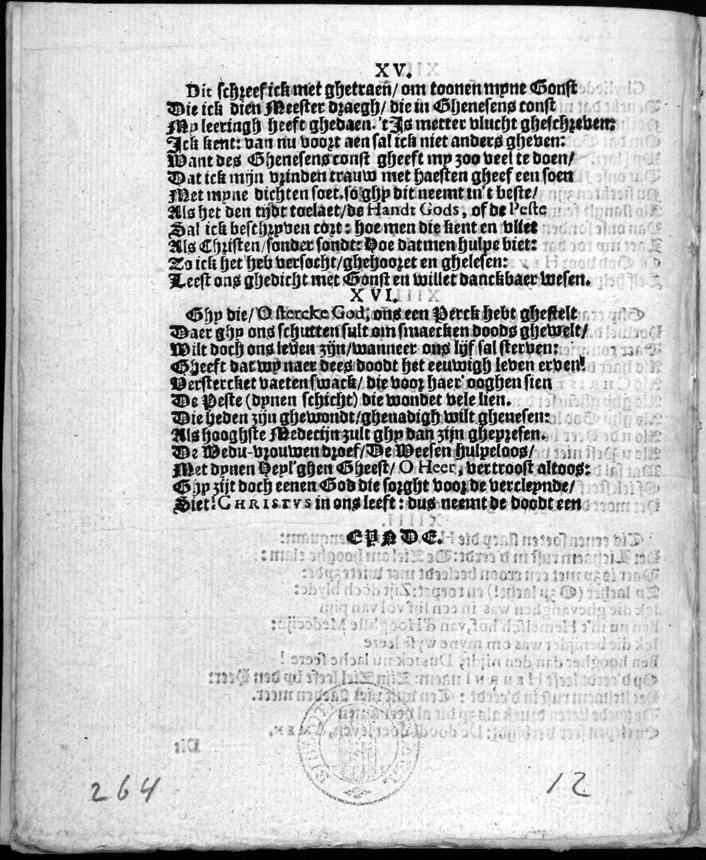 XV.
Dit schreef ick met ghetraen/ om toonen myne Gonst
Die ick dien Meester draegh/ die in Ghenesens const
My leeringh heeft ghedaen. 't Is metter vlucht gheschreven:
Ick kent: van nu voort aen sal ick niet anders gheven:
Want des Ghenesens const gheeft my zoo veel te doen/
Dat ick mijn vrinden trauw met haesten gheef een soen
Met myne dichten soet. so ghy dit neemt in 't beste/
Als het den tijdt toelaet/ de Handt Gods, of de Peste
Sal ick beschryven cort: hoe men die kent en vliet
Als Christen/ sonder sondt: Hoe datmen hulpe biet:
Zo ick het heb versocht/ ghehooret en ghelesen:
Leest ons ghedicht met Gonst en willet danckbaer wesen.
XVI.
Ghy die/ O stercke God, ons een Perck hebt ghestelt
Daer ghy ons schutten sult om smaecken doods ghewelt/
Wilt doch ons leven zijn/ wanneer ons lijf sal sterven:
Gheeft dat wy naer dees doodt het eeuwigh leven erven!
Verstercket vaeten swack/ die voor haer' ooghen sien
De Peste (dynen schicht) die wondet vele lien.
Die heden zijn ghewondt/ ghenadigh wilt ghenesen:
Als hooghste Medecijn zult ghy dan zijn ghepresen.
De Wedu-vrouwen droef/ De Weesen hulpeloos/
Met dynen Heyl'ghen Gheest/ O Heer, vertroost altoos:
Ghy zijt doch eenen God die sorght voor de vercleynde/
Siet! CHRISTVS in ons leeft: dus neemt de doodt een
EYNDE.
264
12